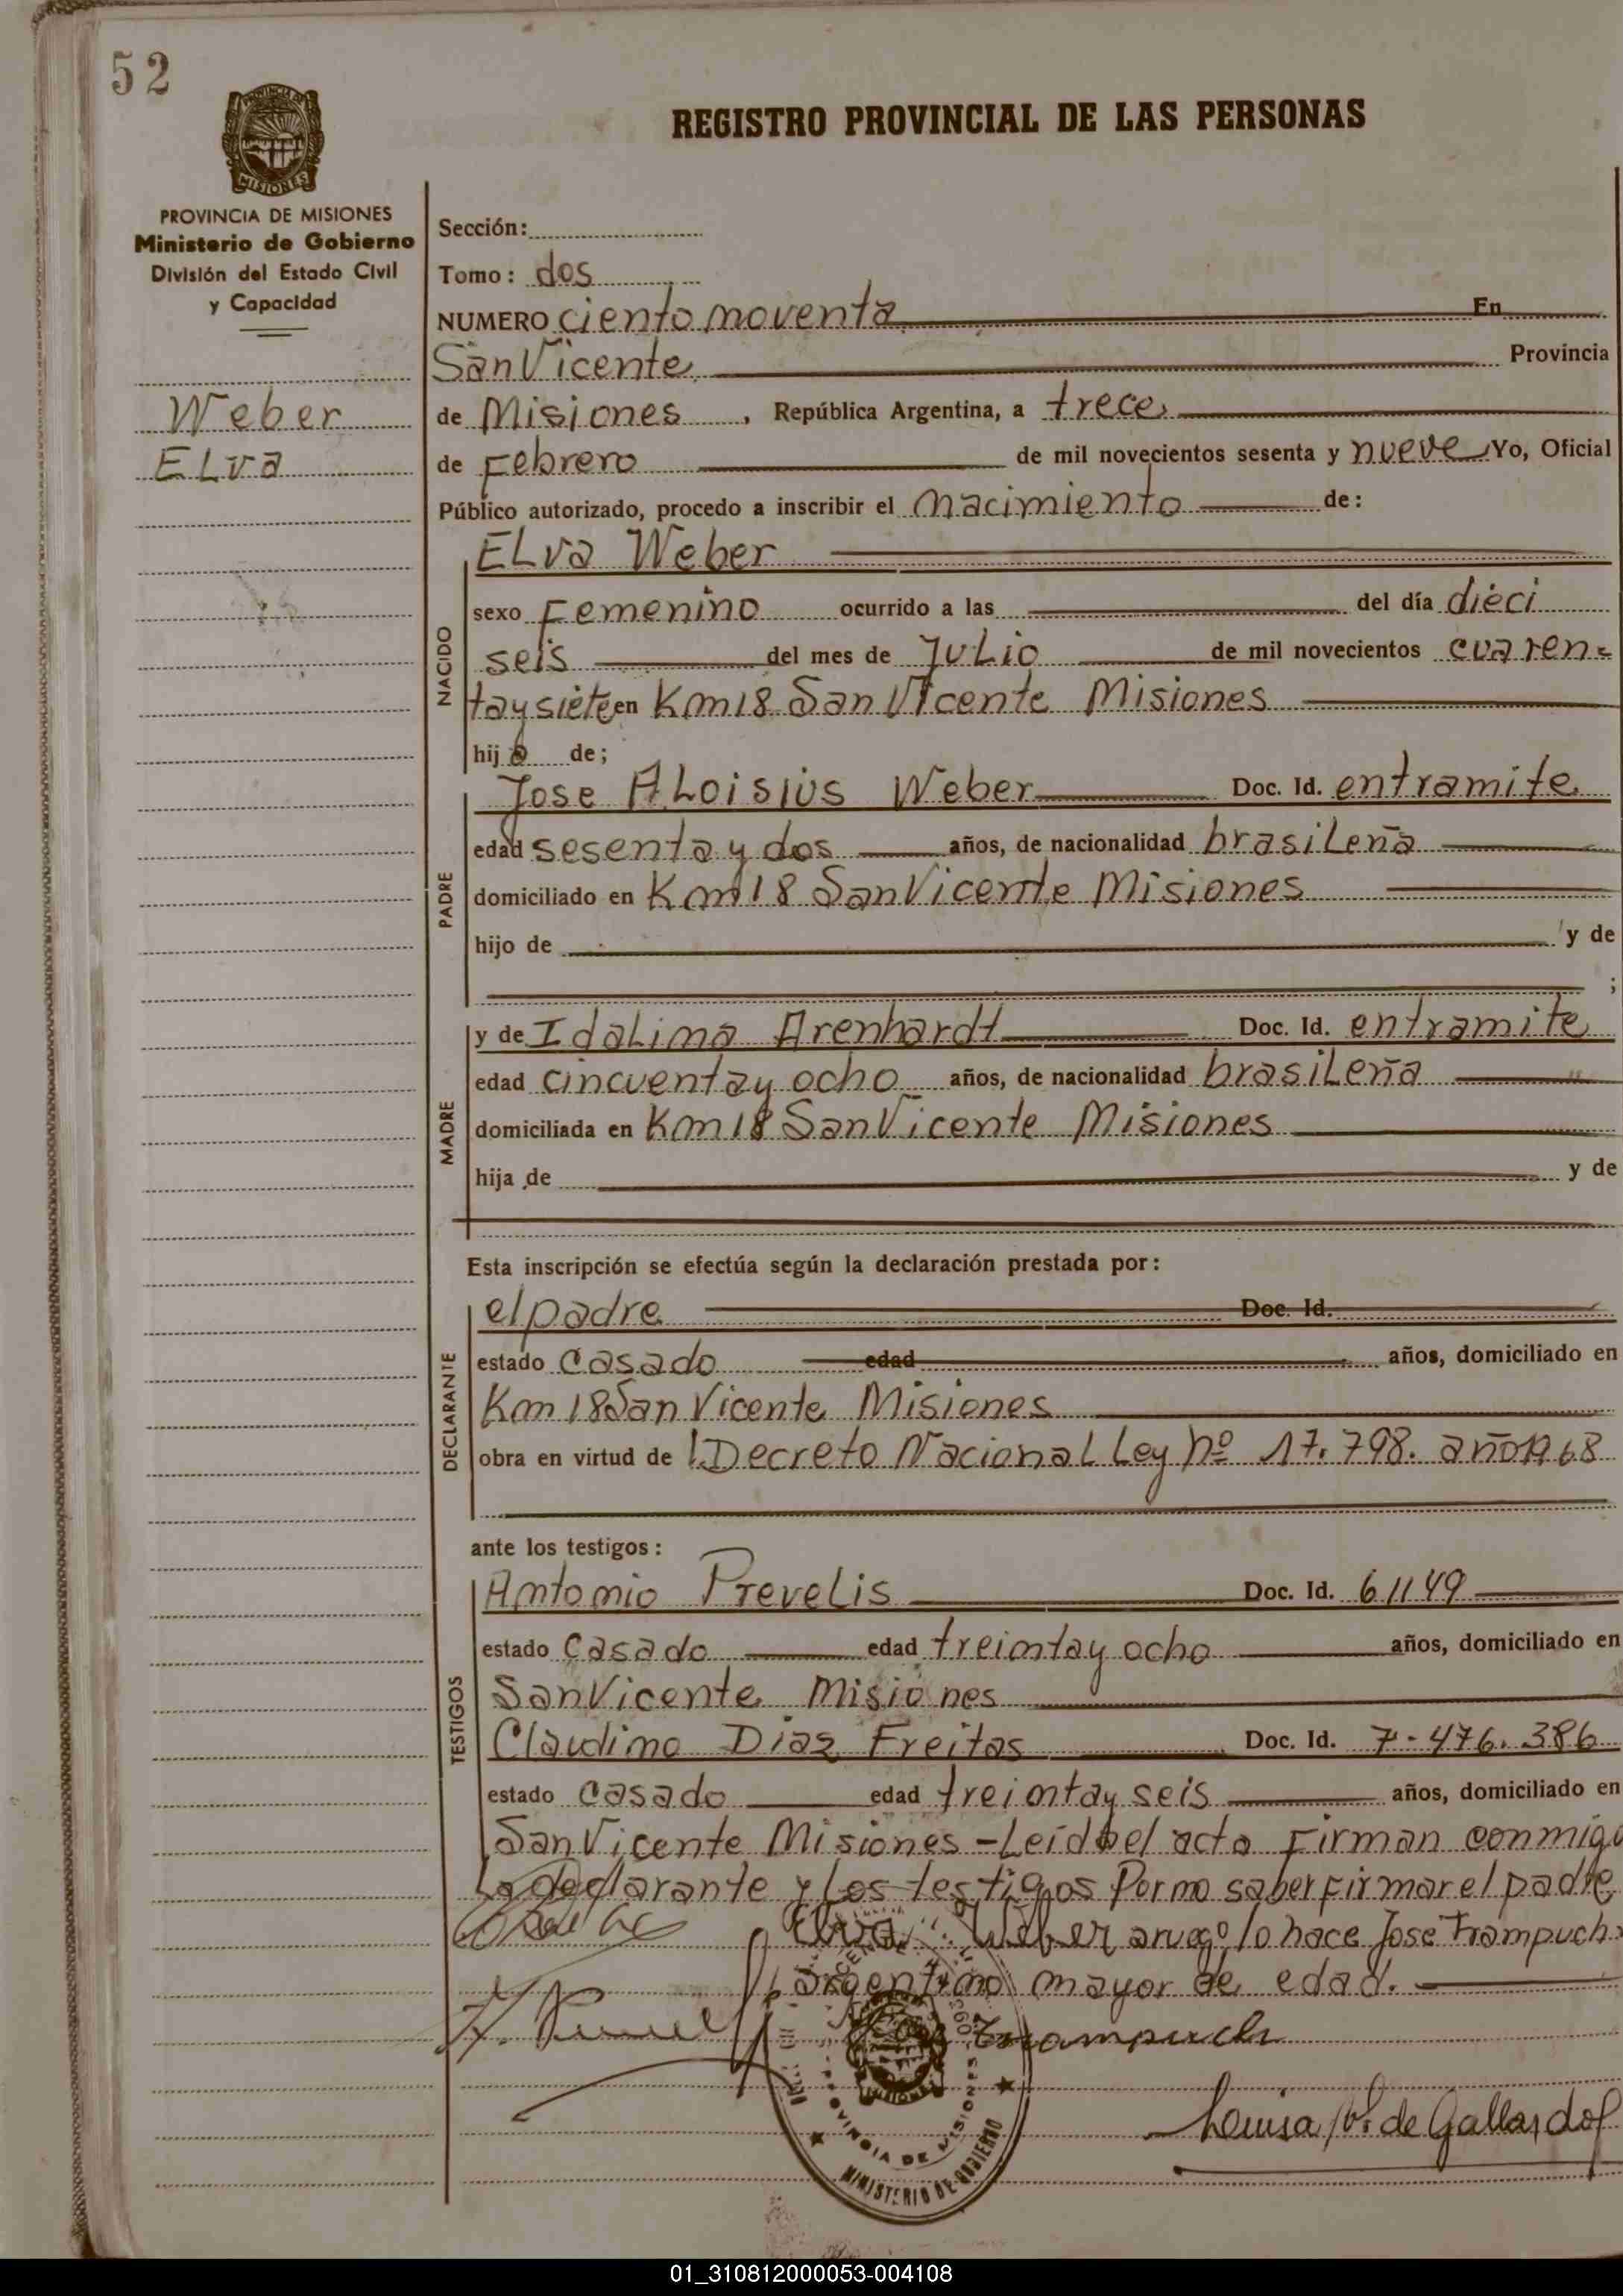 52
REGISTRO PROVINCIAL DE LAS PERSONAS
PROVINCIA DE MISIONES
Ministerio de Gobierno
División del Estado Civil
y Capacidad
Weber
ELva
Sección:
Tomo: dos
NUMERO ciento noventa En
San Vicente Provincia
de Misiones, República Argentina, a trece
de Febrero de mil novecientos sesenta y nueve Yo, Oficial
Público autorizado, procedo a inscribir el nacimiento de:
NACIDO
ELva Weber
sexo Femenino ocurrido a las del día dieci
seis del mes de Julio de mil novecientos cuaren=
tay siete en Km 18 San Vicente Misiones
hija de;
PADRE
Jose ALoisius Weber Doc. Id. entramite
edad sesenta y dos años, de nacionalidad brasiLeña
domiciliado en Km 18 San Vicente Misiones
hijo de y de
;
MADRE
y de IdaLina Arenhardt Doc. Id. entramite
edad cincuentay ocho años, de nacionalidad brasiLeña
domiciliada en Km 18 San Vicente Misiones
hija de y de
Esta inscripción se efectúa según la declaración prestada por:
DECLARANTE
el padre Doc. Id.
estado casado edad años, domiciliado en
Km 18 San Vicente Misiones
obra en virtud de Decreto NacionaL Ley nº 17.798. año 1968
ante los testigos:
TESTIGOS
Antonio PreveLis Doc. Id. 61149
estado casado edad treintay ocho años, domiciliado en
San Vicente Misiones
Claudino Diaz Freitas Doc. Id. 7-476.386
estado casado edad treintay seis años, domiciliado en
San Vicente Misiones - Leido el acta Firman conmigo
La declarante y Los testigos Por no saber firmar el padre
Elva Weber a ruego lo hace Jose Trampuch
argentino mayor de edad.
Jose Trampuch
Luisa V. de Gallardo
PROVINCIA DE MISIONES
MINISTERIO DE GOBIERNO
01_310812000053-004108